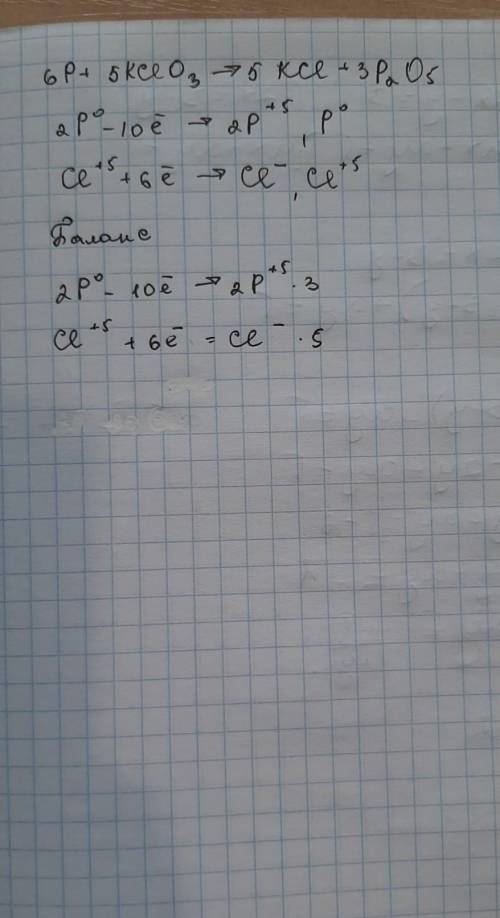 6P + 5KClO₃ → 5 KCl + 3P₂O₅
2P⁰ - 10ē → 2P⁺⁵, P⁰
Cl⁺⁵ + 6ē → Cl⁻, Cl⁺⁵
Баланс
2P⁰ - 10ē → 2P⁺⁵ · 3
Cl⁺⁵ + 6ē = Cl⁻ · 5